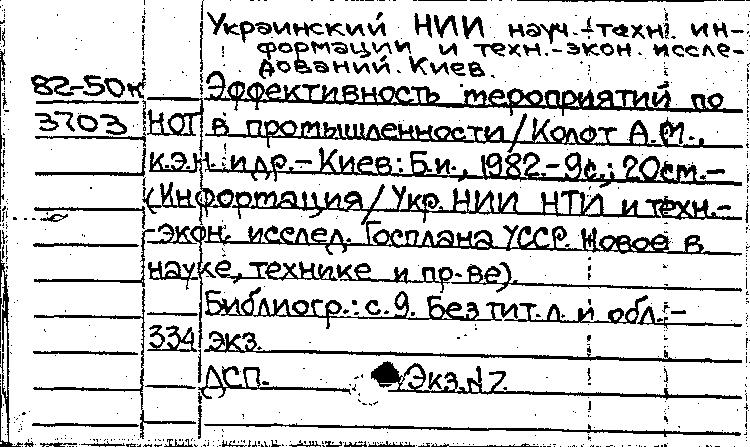 Украинский НИИ науч.-техн. ин-
формации и техн.-экон. иссле-
дований. Киев.
82-50к Эффективность мероприятий по
3703 НОТ в промышленности/Колот А.М.,
к.э.н. и др.-Киев: Б.и., 1982.-9с.; 20см.-
(Информация/Укр. НИИ НТИ и техн.-
-экон. исслед. Госплана УССР. Новое в
науке, технике и пр-ве).
Библиогр.: с.9. Без тит.л. и обл.-
334 экз.
ДСП. Экз.№7.